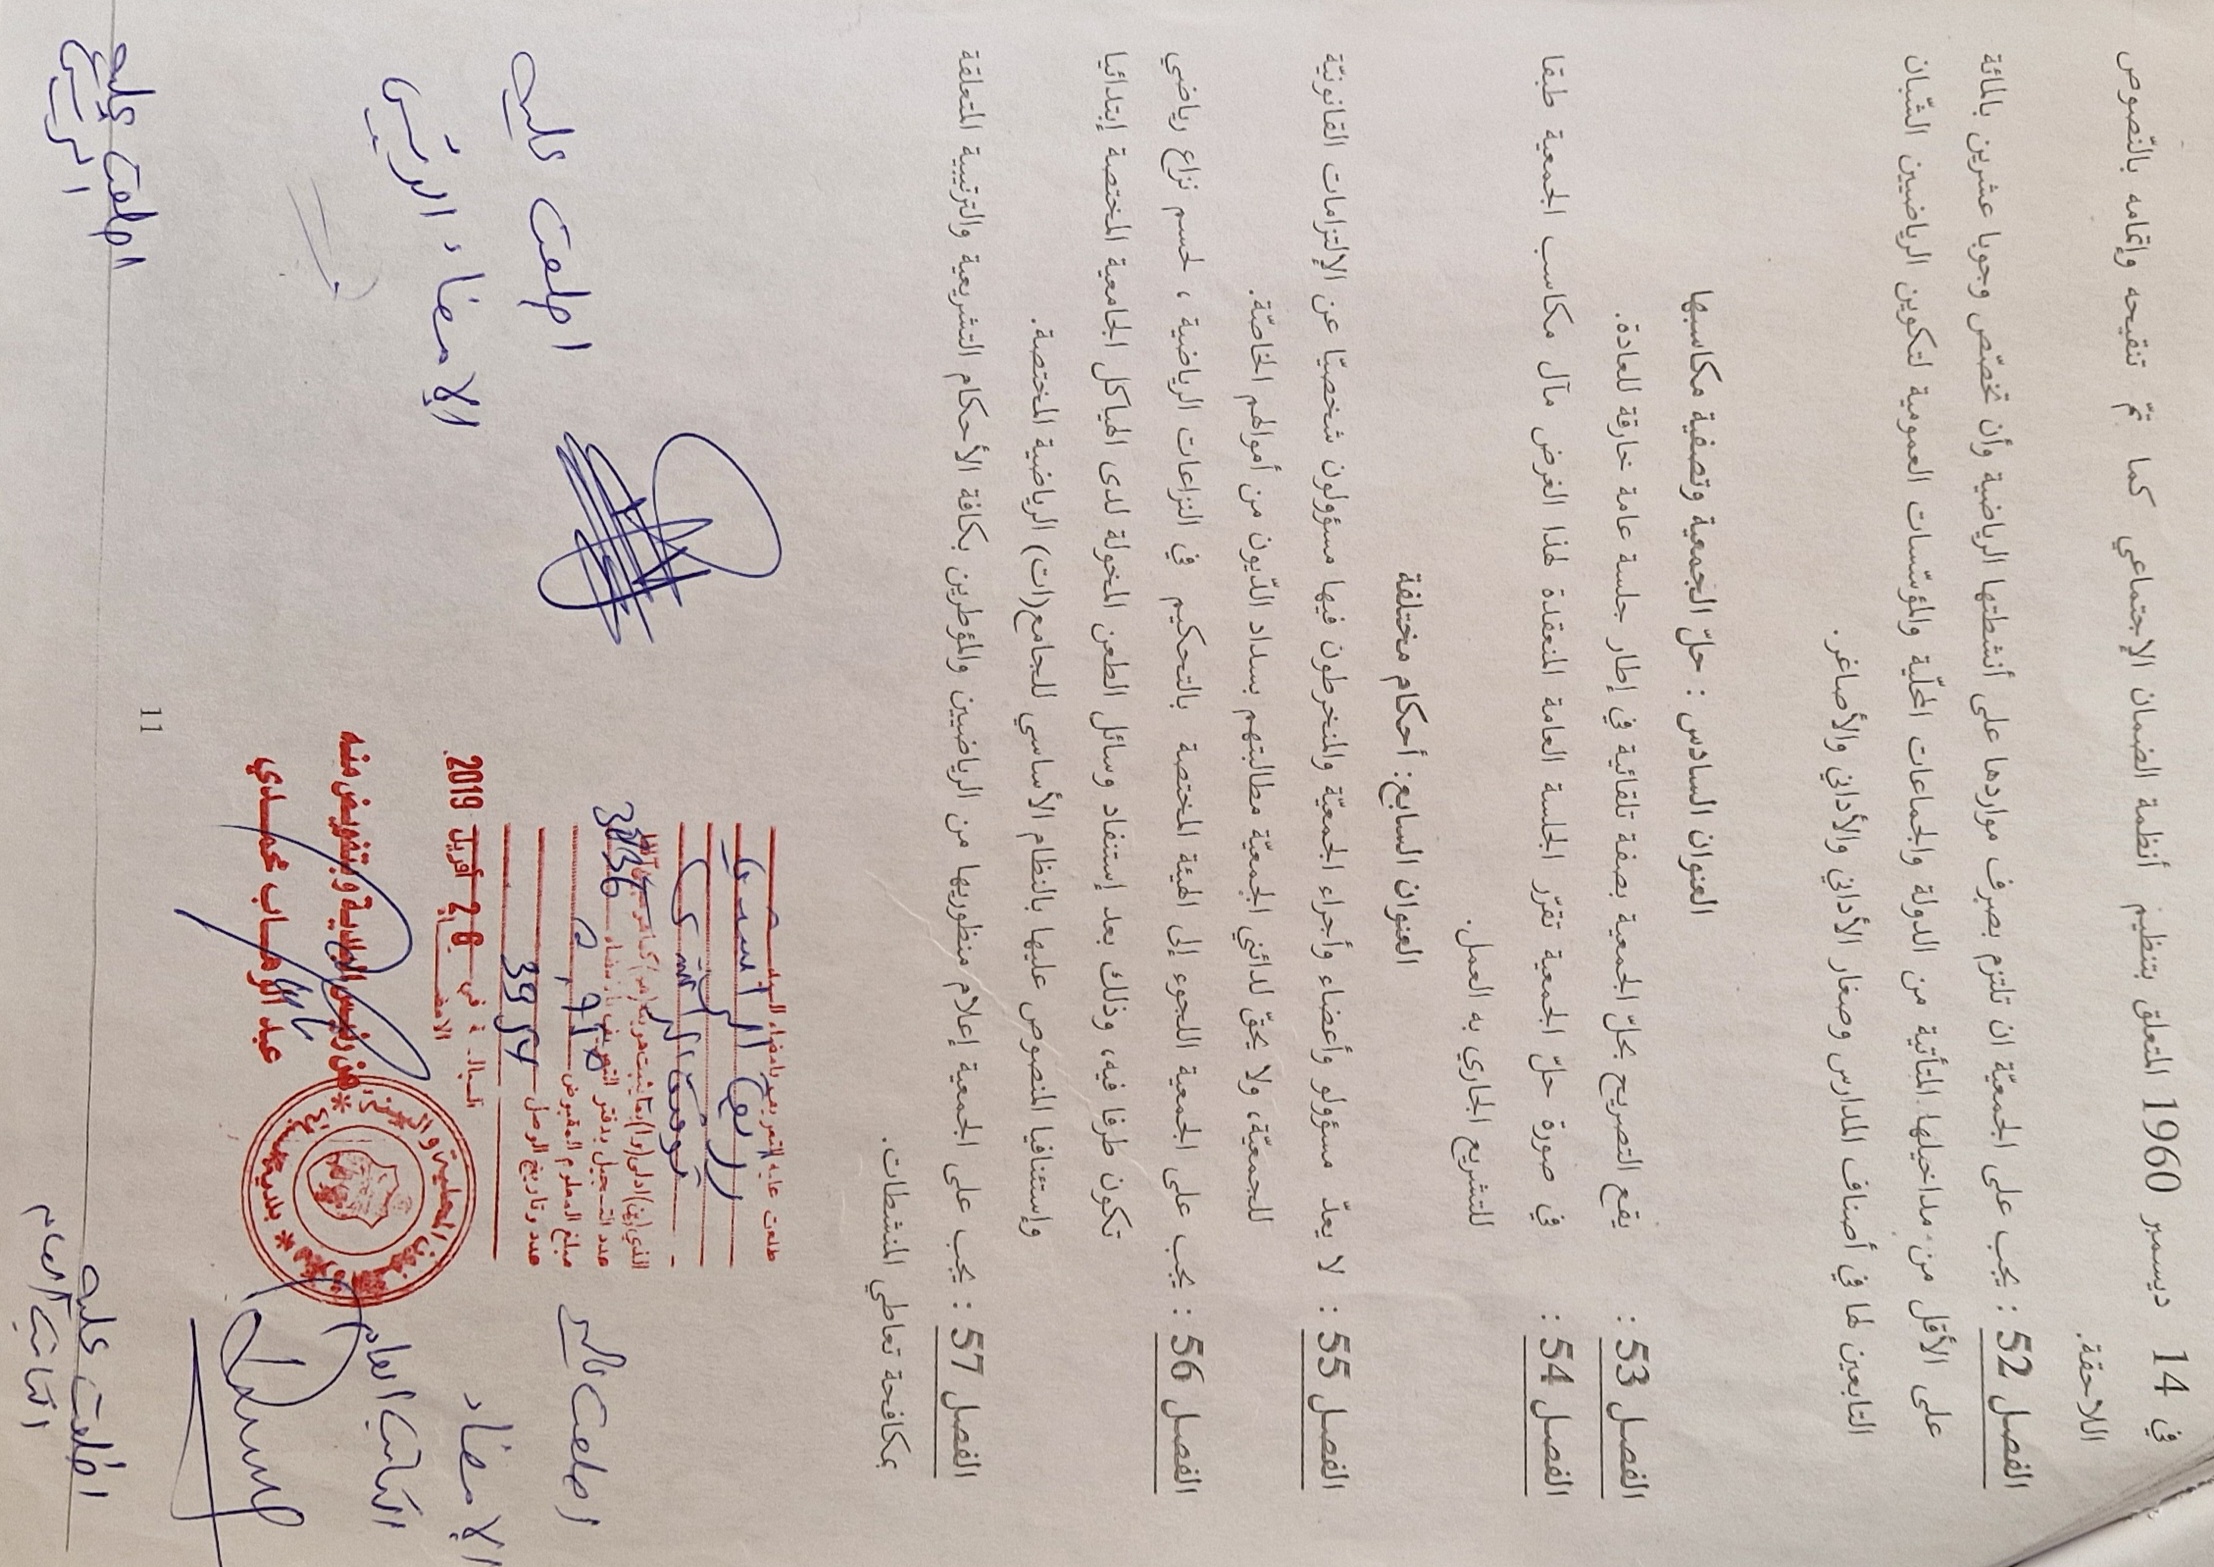 في 14 ديسمبر 1960 المتعلق بتنظيم أنظمة الضمان الإجتماعي كما تمّ تنقيحه وإتمامه بالنّصوص
اللاحقة.
الفصل 52 : يجب على الجمعيّة ان تلتزم بصرف مواردها على أنشطتها الرياضية وأن تخصّص وجوبا عشرين بالمائة
على الأقل من مداخيلها المتأتية من الدولة والجماعات المحلّية والمؤسّسات العمومية لتكوين الرياضيين الشّبان
التابعين لها في أصناف المدارس وصغار الأداني والأداني والأصاغر.
العنوان السادس : حلّ الجمعية وتصفية مكاسبها
الفصل 53 : يقع التصريح بحلّ الجمعية بصفة تلقائية في إطار جلسة عامة خارقة للعادة.
الفصل 54 : في صورة حلّ الجمعية تقرّر الجلسة العامة المنعقدة لهذا الغرض مآل مكاسب الجمعية طبقا
للتشريع الجاري به العمل.
العنوان السابع: أحكام مختلفة
الفصل 55 : لا يعدّ مسؤولو وأعضاء وأجراء الجمعيّة والمنخرطون فيها مسؤولون شخصيّا عن الإلتزامات القانونيّة
للجمعيّة، ولا يحقّ لدائني الجمعيّة مطالبتهم بسداد الدّيون من أموالهم الخاصّة.
الفصل 56 : يجب على الجمعية اللجوء إلى الهيئة المختصة بالتحكيم في النزاعات الرياضية ، لحسم نزاع رياضي
تكون طرفا فيه، وذلك بعد إستنفاد وسائل الطعن المخولة لدى الهياكل الجامعية المختصة إبتدائيا
وإستئنافيا المنصوص عليها بالنظام الأساسي للجامع(ات) الرياضية المختصة.
الفصل 57 : يجب على الجمعية إعلام منظوريها من الرياضيين والمؤطرين بكافة الأحكام التشريعية والترتيبية المتعلقة
بمكافحة تعاطي المنشطات.
اطلعت عليه
الإمضاء الرئيس
اطلعت عليه
الإمضاء
الكاتب العام
عدد وتاريخ الوصل 3954
2019
عبد الوهاب محمدي
11
اطلعت عليه
الرئيس
اطلعت عليه
الكاتب العام